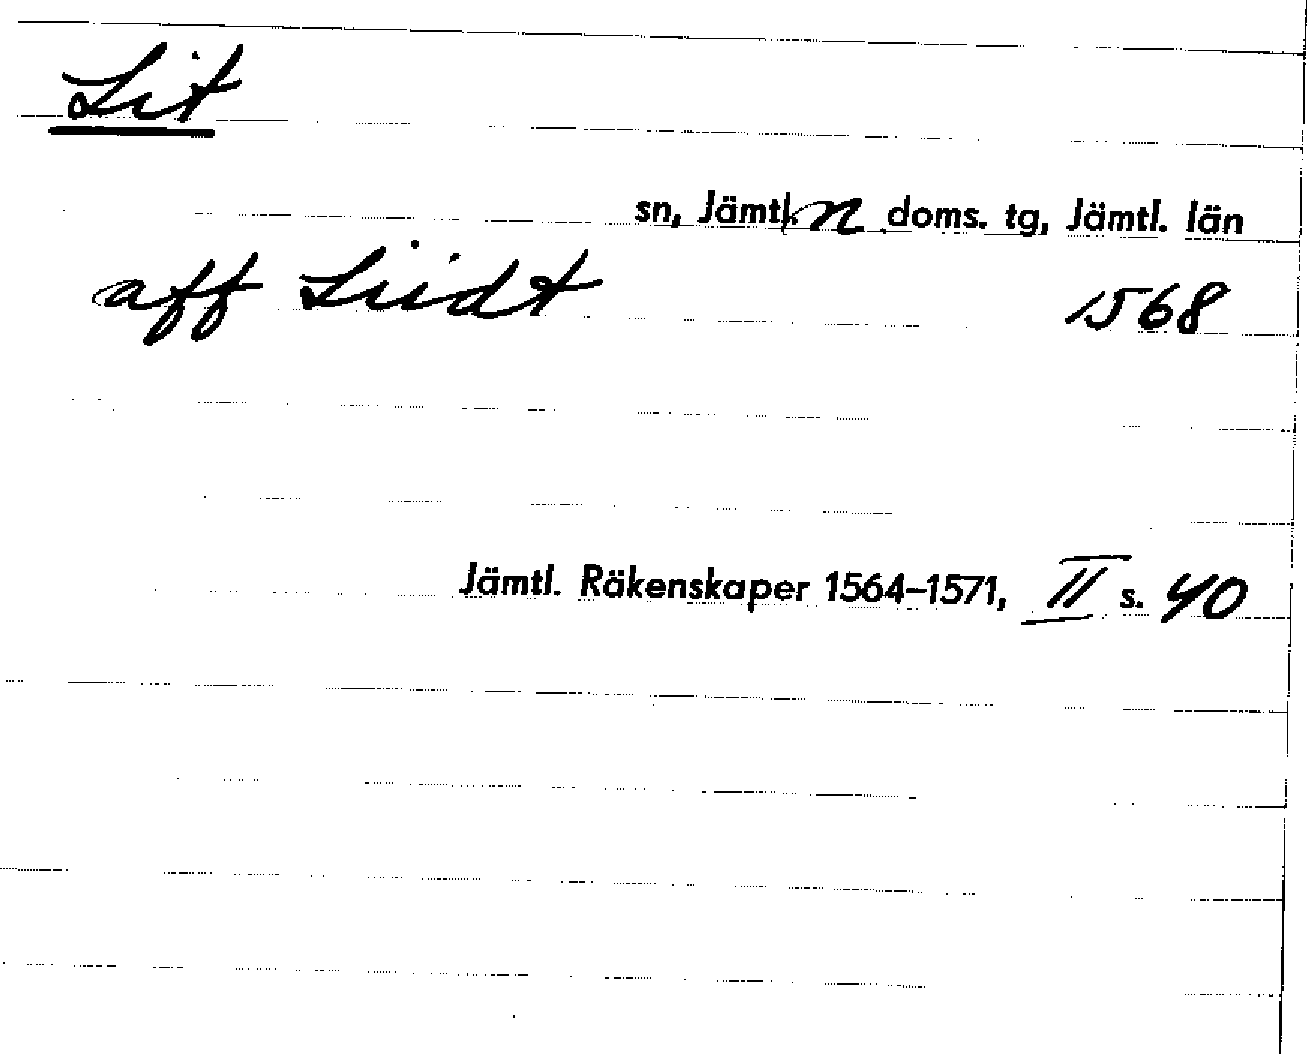 Lit
sn, Jämtl. n doms. tg, Jämtl. län
aff Liidt 1568
Jämtl. Räkenskaper 1564–1571, II s. 40